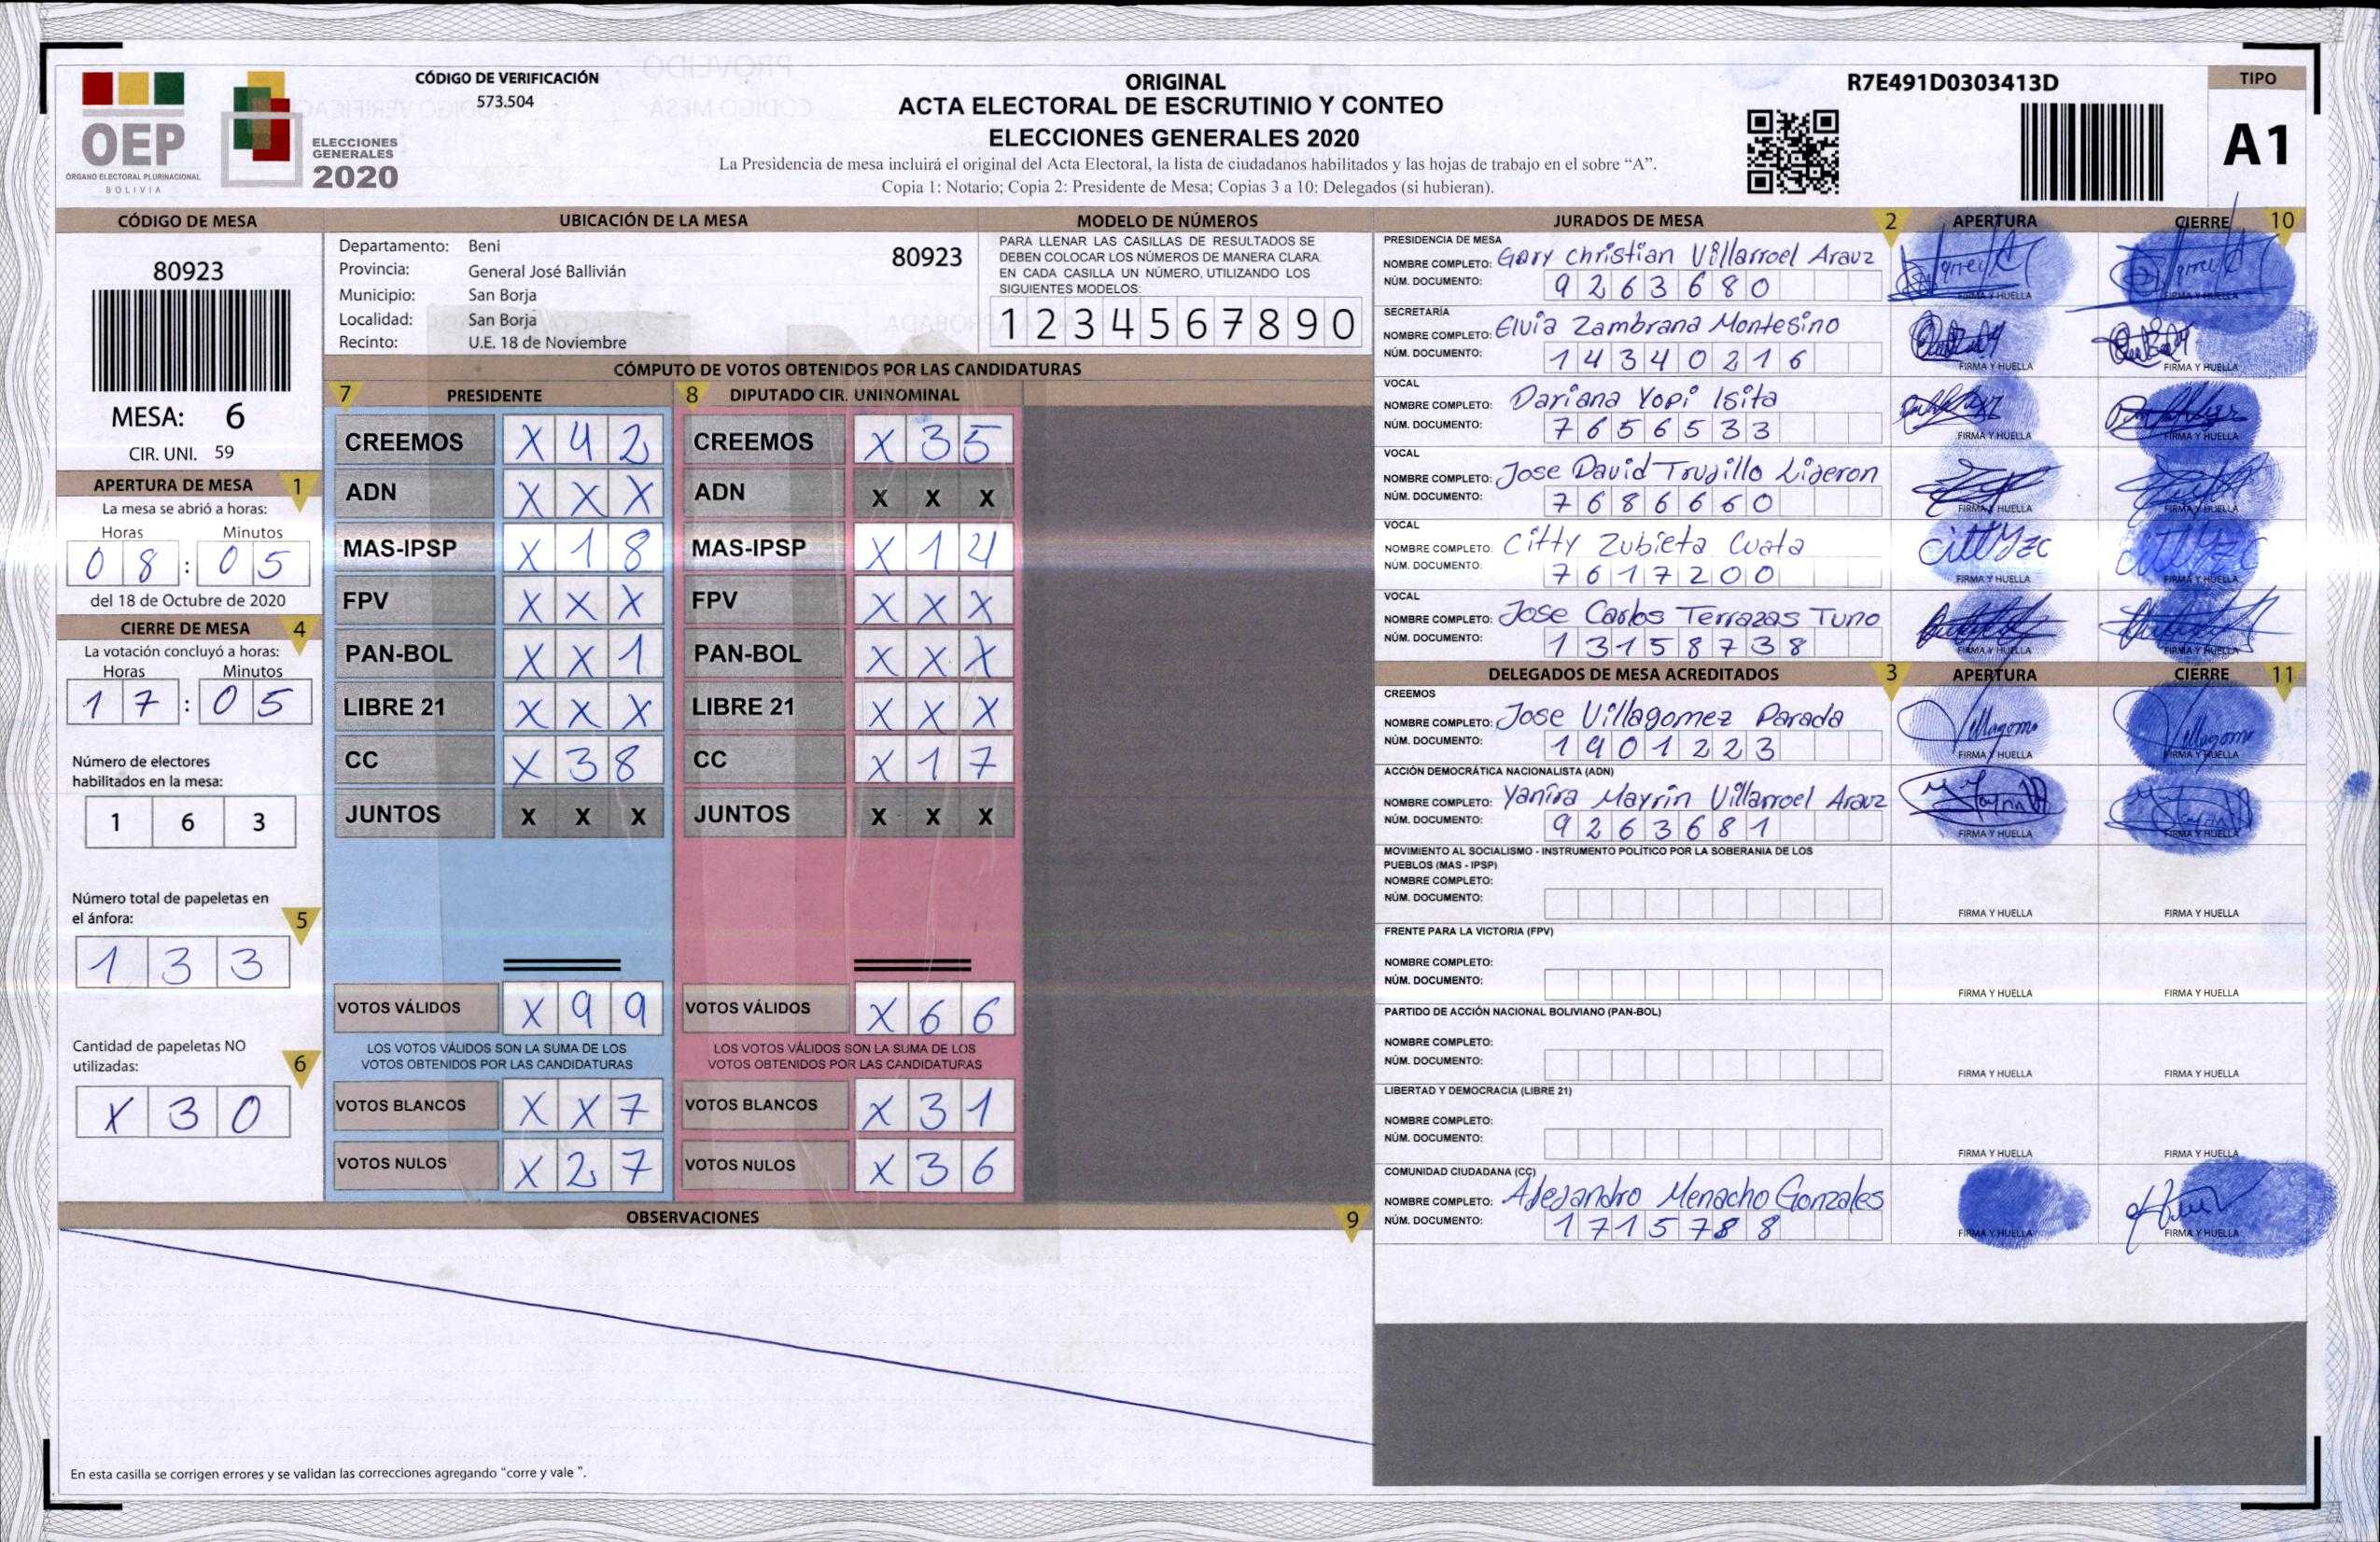 OEP
ÓRGANO ELECTORAL PLURINACIONAL
BOLIVIA
ELECCIONES
GENERALES
2020
CÓDIGO DE VERIFICACIÓN
573.504
ORIGINAL
ACTA ELECTORAL DE ESCRUTINIO Y CONTEO
ELECCIONES GENERALES 2020
La Presidencia de mesa incluirá el original del Acta Electoral, la lista de ciudadanos habilitados y las hojas de trabajo en el sobre “A”.
Copia 1: Notario; Copia 2: Presidente de Mesa; Copias 3 a 10: Delegados (si hubieran).
R7E491D0303413D
TIPO
A1
CÓDIGO DE MESA
80923
MESA: 6
CIR. UNI. 59
APERTURA DE MESA 1
La mesa se abrió a horas:
Horas Minutos
0 8 : 0 5
del 18 de Octubre de 2020
CIERRE DE MESA 4
La votación concluyó a horas:
Horas Minutos
1 7 : 0 5
Número de electores
habilitados en la mesa:
1 6 3
Número total de papeletas en
el ánfora: 5
1 3 3
Cantidad de papeletas NO
utilizadas: 6
X 3 0
UBICACIÓN DE LA MESA
Departamento: Beni 80923
Provincia: General José Ballivián
Municipio: San Borja
Localidad: San Borja
Recinto: U.E. 18 de Noviembre
MODELO DE NÚMEROS
PARA LLENAR LAS CASILLAS DE RESULTADOS SE
DEBEN COLOCAR LOS NÚMEROS DE MANERA CLARA.
EN CADA CASILLA UN NÚMERO, UTILIZANDO LOS
SIGUIENTES MODELOS:
1 2 3 4 5 6 7 8 9 0
CÓMPUTO DE VOTOS OBTENIDOS POR LAS CANDIDATURAS
7 PRESIDENTE 8 DIPUTADO CIR. UNINOMINAL
CREEMOS X 4 2 CREEMOS X 3 5
ADN X X X ADN X X X
MAS-IPSP X 1 8 MAS-IPSP X 1 4
FPV X X X FPV X X X
PAN-BOL X X 1 PAN-BOL X X X
LIBRE 21 X X X LIBRE 21 X X X
CC X 3 8 CC X 1 7
JUNTOS X X X JUNTOS X X X
VOTOS VÁLIDOS X 9 9 VOTOS VÁLIDOS X 6 6
LOS VOTOS VÁLIDOS SON LA SUMA DE LOS LOS VOTOS VÁLIDOS SON LA SUMA DE LOS
VOTOS OBTENIDOS POR LAS CANDIDATURAS VOTOS OBTENIDOS POR LAS CANDIDATURAS
VOTOS BLANCOS X X 7 VOTOS BLANCOS X 3 1
VOTOS NULOS X 2 7 VOTOS NULOS X 3 6
OBSERVACIONES 9
En esta casilla se corrigen errores y se validan las correcciones agregando “corre y vale ”.
JURADOS DE MESA 2 APERTURA CIERRE 10
PRESIDENCIA DE MESA
NOMBRE COMPLETO: Gary Christian Villarroel Arauz
NÚM. DOCUMENTO: 9 2 6 3 6 8 0
FIRMA Y HUELLA FIRMA Y HUELLA
SECRETARÍA
NOMBRE COMPLETO: Elvia Zambrana Montesino
NÚM. DOCUMENTO: 1 4 3 4 0 2 1 6
FIRMA Y HUELLA FIRMA Y HUELLA
VOCAL
NOMBRE COMPLETO: Dariana Yopi Isita
NÚM. DOCUMENTO: 7 6 5 6 5 3 3
FIRMA Y HUELLA FIRMA Y HUELLA
VOCAL
NOMBRE COMPLETO: Jose David Trujillo Lijeron
NÚM. DOCUMENTO: 7 6 8 6 6 6 0
FIRMA Y HUELLA FIRMA Y HUELLA
VOCAL
NOMBRE COMPLETO: Citty Zubieta Cuata
NÚM. DOCUMENTO: 7 6 1 7 2 0 0
FIRMA Y HUELLA FIRMA Y HUELLA
VOCAL
NOMBRE COMPLETO: Jose Carlos Terrazas Tuno
NÚM. DOCUMENTO: 1 3 1 5 8 7 3 8
FIRMA Y HUELLA FIRMA Y HUELLA
DELEGADOS DE MESA ACREDITADOS 3 APERTURA CIERRE 11
CREEMOS
NOMBRE COMPLETO: Jose Villagomez Parada
NÚM. DOCUMENTO: 1 9 0 1 2 2 3
FIRMA Y HUELLA FIRMA Y HUELLA
ACCIÓN DEMOCRÁTICA NACIONALISTA (ADN)
NOMBRE COMPLETO: Yanira Mayrin Villarroel Arauz
NÚM. DOCUMENTO: 9 2 6 3 6 8 1
FIRMA Y HUELLA FIRMA Y HUELLA
MOVIMIENTO AL SOCIALISMO - INSTRUMENTO POLÍTICO POR LA SOBERANIA DE LOS
PUEBLOS (MAS - IPSP)
NOMBRE COMPLETO:
NÚM. DOCUMENTO:
FIRMA Y HUELLA FIRMA Y HUELLA
FRENTE PARA LA VICTORIA (FPV)
NOMBRE COMPLETO:
NÚM. DOCUMENTO:
FIRMA Y HUELLA FIRMA Y HUELLA
PARTIDO DE ACCIÓN NACIONAL BOLIVIANO (PAN-BOL)
NOMBRE COMPLETO:
NÚM. DOCUMENTO:
FIRMA Y HUELLA FIRMA Y HUELLA
LIBERTAD Y DEMOCRACIA (LIBRE 21)
NOMBRE COMPLETO:
NÚM. DOCUMENTO:
FIRMA Y HUELLA FIRMA Y HUELLA
COMUNIDAD CIUDADANA (CC)
NOMBRE COMPLETO: Alejandro Menacho Gonzales
NÚM. DOCUMENTO: 1 7 1 5 7 8 8
FIRMA Y HUELLA FIRMA Y HUELLA